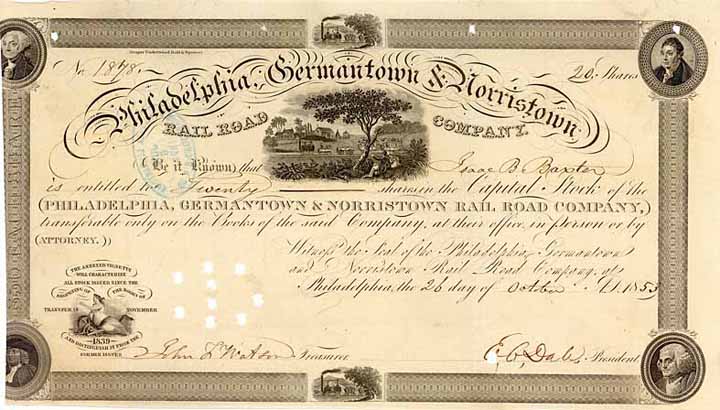 Draper Underwood Bald & Spencer
No. 1878.
20 Shares
Philadelphia, Germantown & Norristown
RAIL ROAD COMPANY.
(Be it Known) that Isaac B. Baxter
is entitled to Twenty shares in the Capital Stock of the
(PHILADELPHIA, GERMANTOWN & NORRISTOWN RAIL ROAD COMPANY,)
transferable only on the Books of the said Company, at their office, in person or by
(ATTORNEY.)
Witness the Seal of the Philadelphia, Germantown
and Norristown Rail Road Company, at
Philadelphia, the 26 day of October A.D. 1853
THE ANNEXED VIGNETTE
WILL CHARACTERIZE
ALL STOCK ISSUED SINCE THE
OPENING OF THE BOOKS OF
TRANSFER IN NOVEMBER
1839
AND DISTINGUISH IT FROM THE
FORMER ISSUES
John S Watson Treasurer
E. C. Dale, President